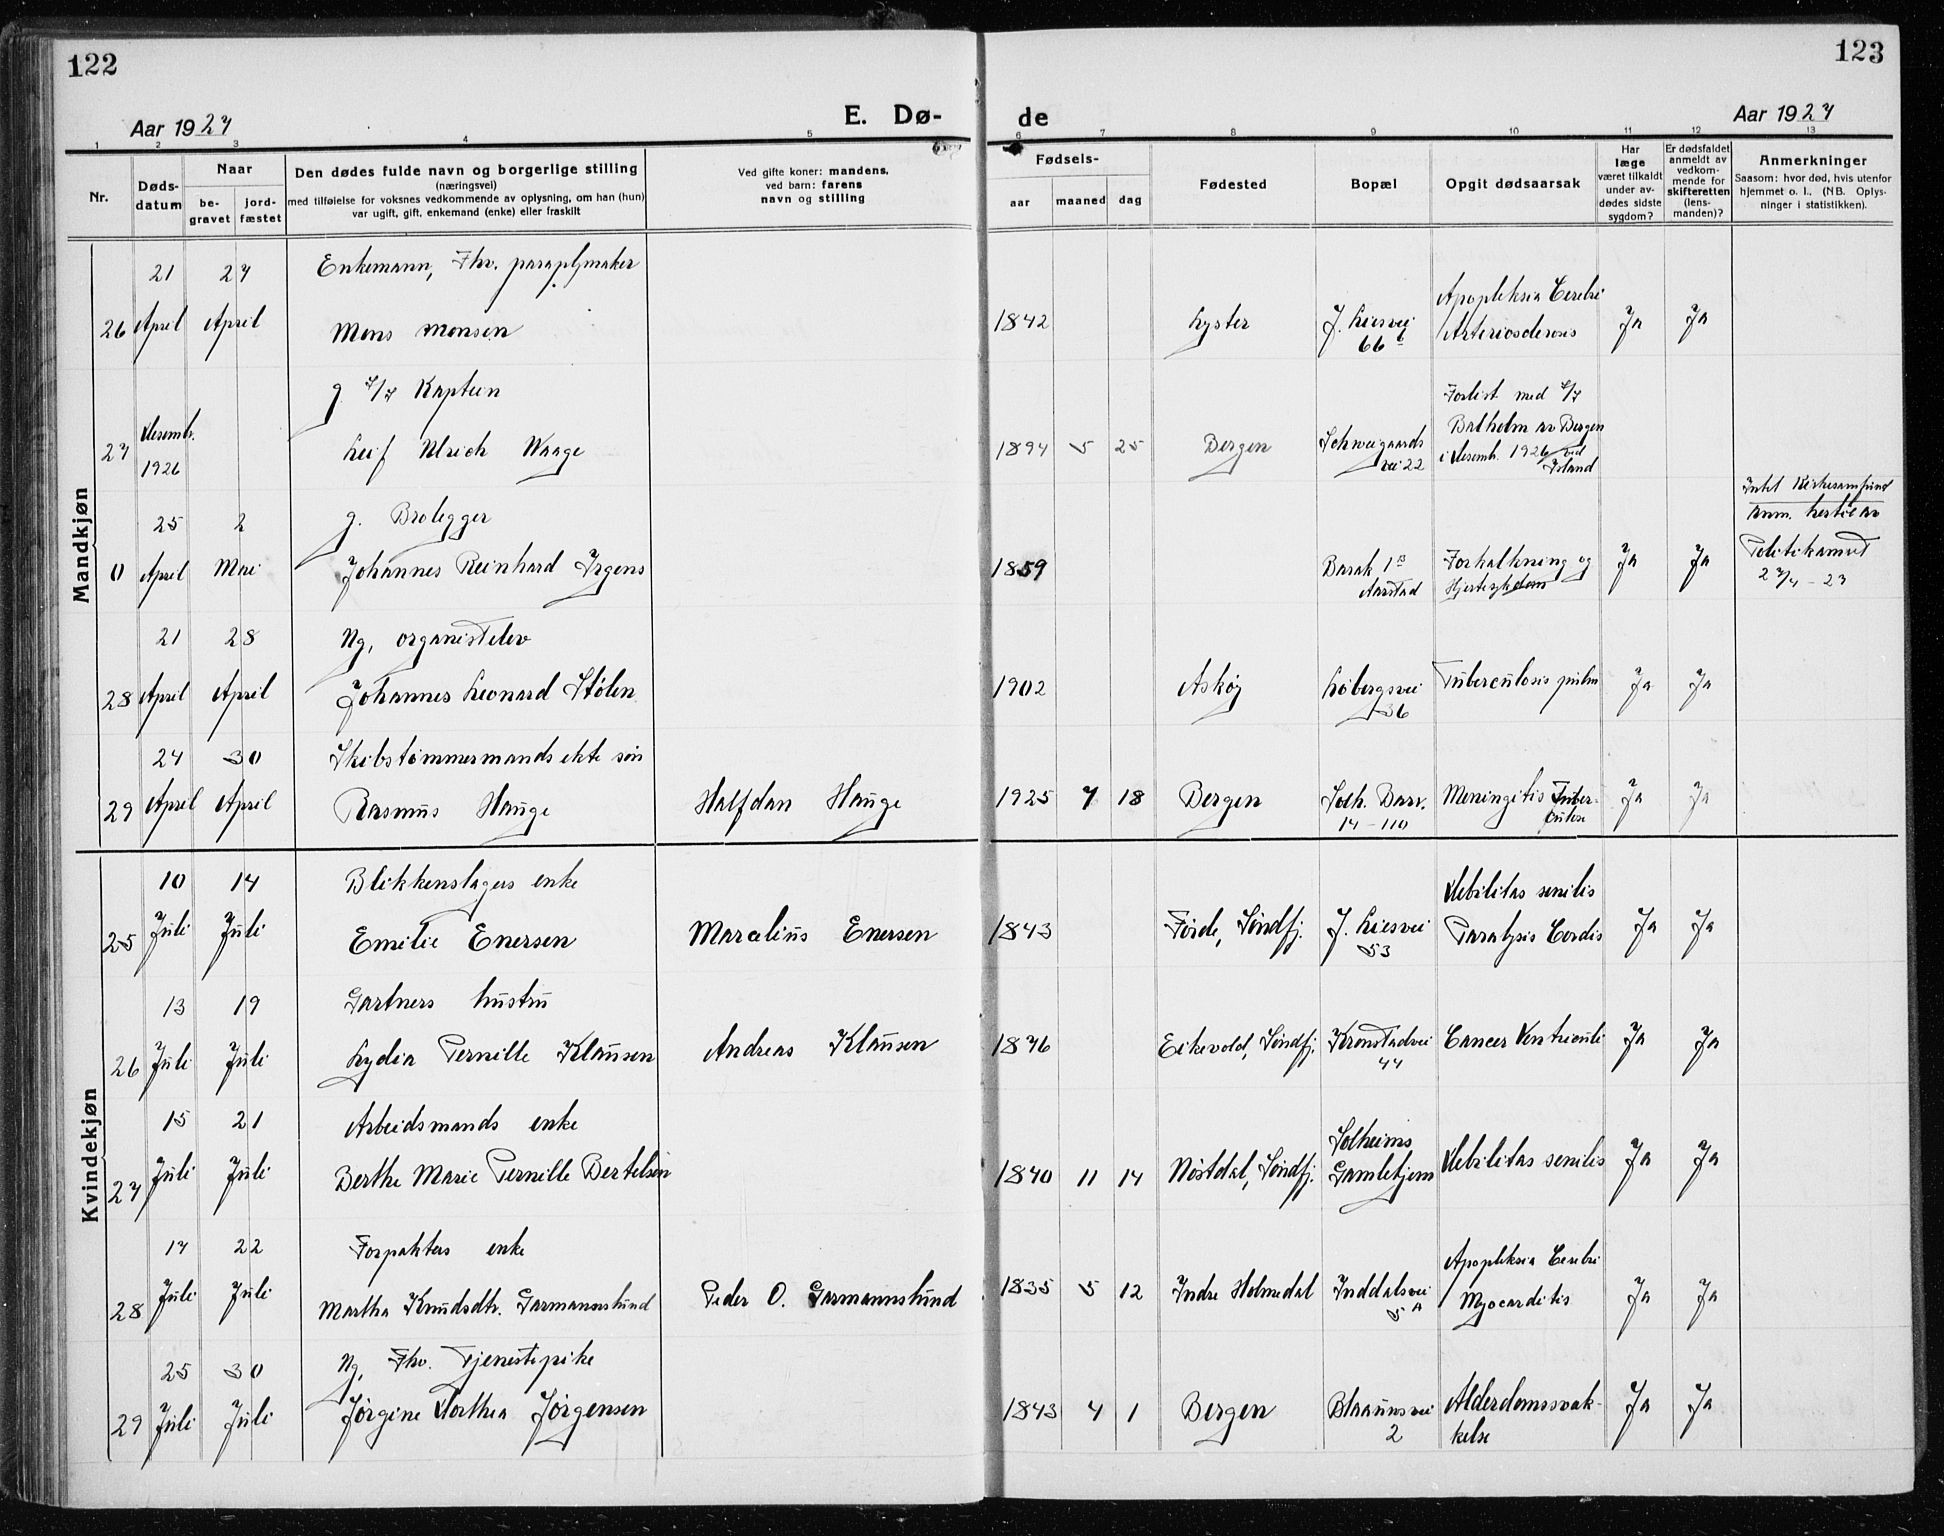 122
123
Aar 1927
E. Dø-
de
Aar 1927
1 2 3 4 5 6 7 8 9 10 11 12 13
Nr.
Døds-
datum
Naar
be-
gravet
jord-
fæstet
Den dødes fulde navn og borgerlige stilling
(næringsvei)
med tilføielse for voksnes vedkommende av oplysning, om han (hun)
var ugift, gift, enkemand (enke) eller fraskilt
Ved gifte koner: mandens,
ved barn: farens
navn og stilling
Fødsels-
aar
maaned
dag
Fødested
Bopæl
Opgit dødsaarsak
Har
læge
været tilkaldt
under av-
dødes sidste
sygdom?
Er dødsfaldet
anmeldt av
vedkom-
mende for
skifteretten
(lens-
manden)?
Anmerkninger
Saasom: hvor død, hvis utenfor
hjemmet o. l., (NB. Oplys-
ninger i statistikken).
Mandkjøn
21 27 Enkemann, Fhv. paraplymaker
26 April April Mons Monsen 1842 Lyster J. Liesvei 66 b Apopleksia Cerebri Arteriosclerosis Ja Ja
g. Kaptein
27 Desemb. 1926 Leif Ulrich Waage 1894 5 25 Bergen Schweigaards vei 22 Forlist med Balholm av Bergen i Desemb. 1926 ved Island
25 2 g. Brolegger
0 April Mai Johannes Reinhard Irgens 1859 Barak 1 B Aarstad Forkalkning og Hjertesykdom Ja Ja
Intet Kirkesamfund
anm. hertil av
Politikamret
27/4 - 23
21 28 Ug, organistelev
28 April April Johannes Leonard Stølen 1902 Askøy Løbergsvei 36 Tuberculosis pulm Ja Ja
24 30 Skibstømmermands ekte søn
29 April April Rasmus Hauge Halfdan Hauge 1925 7 18 Bergen Solh. Barr. 14-110 Meningitis Tuber- culose Ja Ja
Kvindekjøn
10 14 Blikkenslagers enke
25 Juli Juli Emilie Enersen Marcelius Enersen 1843 Førde, Søndfj. J. Liesvei 53 Debilitas senilis Paralysis Cordis Ja Ja
13 19 Gartners hustru
26 Juli Juli Lydia Pernille Klausen Andreas Klausen 1876 Eikevold, Søndfj. Kronstadvei 44 Cancer Ventriculi Ja Ja
15 21 Arbeidsmands enke
27 Juli Juli Berthe Marie Pernille Bertelsen 1840 11 14 Nøstdal, Søndfj. Solheims Gamlehjem Debilitas senilis Ja Ja
17 22 Forpakters enke
28 Juli Juli Martha Knudsdtr. Garmannslund Peder O. Garmannslund 1835 5 12 Indre Holmedal Inddalsvei 5 A Apopleksia Cerebri Myocarditis Ja Ja
25 30 Ug, Fhv. Tjenestepike
29 Juli Juli Jørgine Dorthea Jørgensen 1843 4 1 Bergen Blaaunsvei 2 Alderdomssvak- kelse Ja Ja